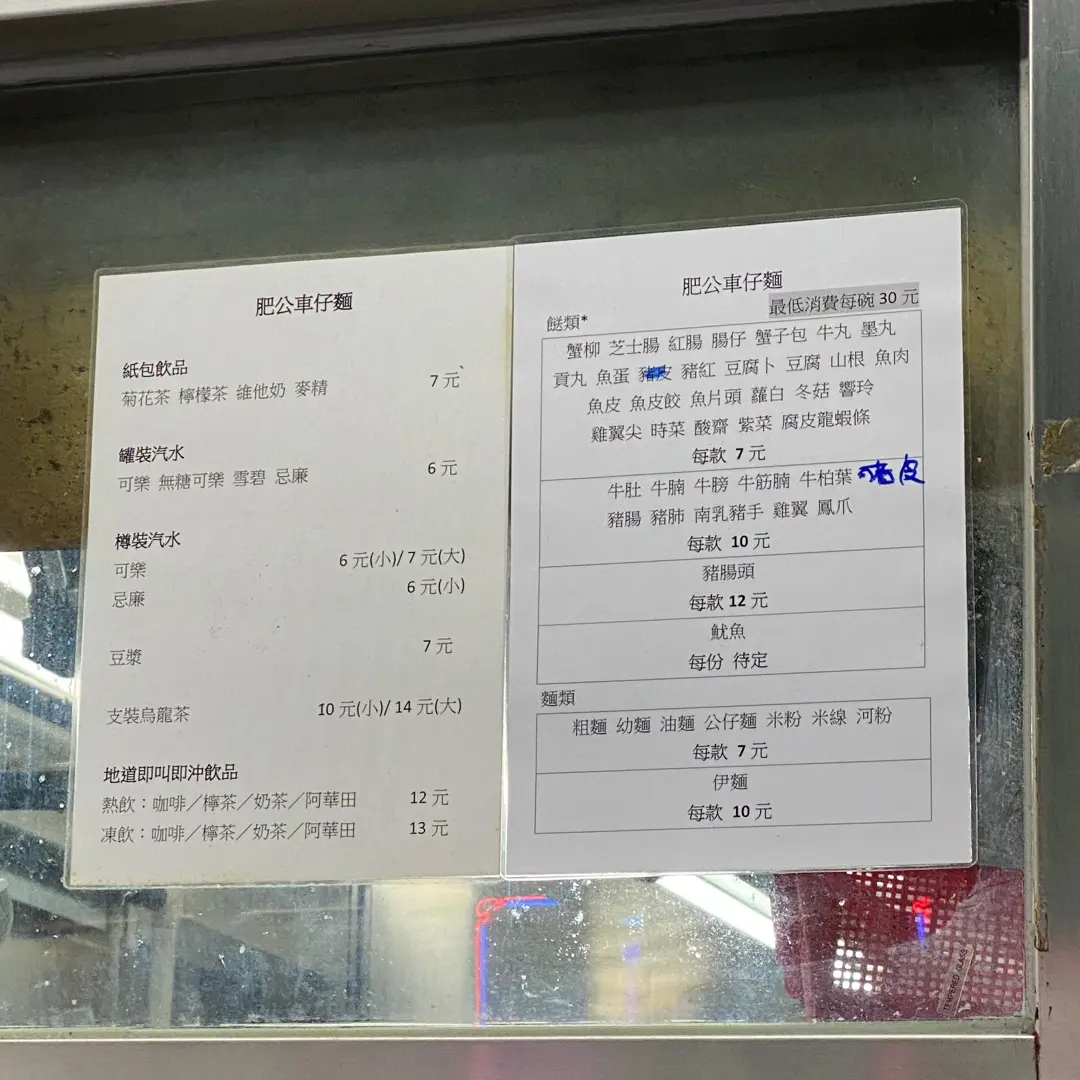 肥公車仔麵
紙包飲品
菊花茶 檸檬茶 維他奶 麥精 7 元
罐裝汽水
可樂 無糖可樂 雪碧 忌廉 6 元
樽裝汽水
可樂 6 元(小)/ 7 元(大)
忌廉 6 元(小)
豆漿 7 元
支裝烏龍茶 10 元(小)/ 14 元(大)
地道即叫即沖飲品
熱飲：咖啡／檸茶／奶茶／阿華田 12 元
凍飲：咖啡／檸茶／奶茶／阿華田 13 元
肥公車仔麵
最低消費每碗 30 元
餸類*
蟹柳 芝士腸 紅腸 腸仔 蟹子包 牛丸 墨丸
貢丸 魚蛋 豬皮 豬紅 豆腐卜 豆腐 山根 魚肉
魚皮 魚皮餃 魚片頭 蘿白 冬菇 響玲
雞翼尖 時菜 酸齋 紫菜 腐皮龍蝦條
每款 7 元
牛肚 牛腩 牛膀 牛筋腩 牛柏葉 豬皮
豬腸 豬肺 南乳豬手 雞翼 鳳爪
每款 10 元
豬腸頭
每款 12 元
魷魚
每份 待定
麵類
粗麵 幼麵 油麵 公仔麵 米粉 米線 河粉
每款 7 元
伊麵
每款 10 元
TEMPERED GLASS